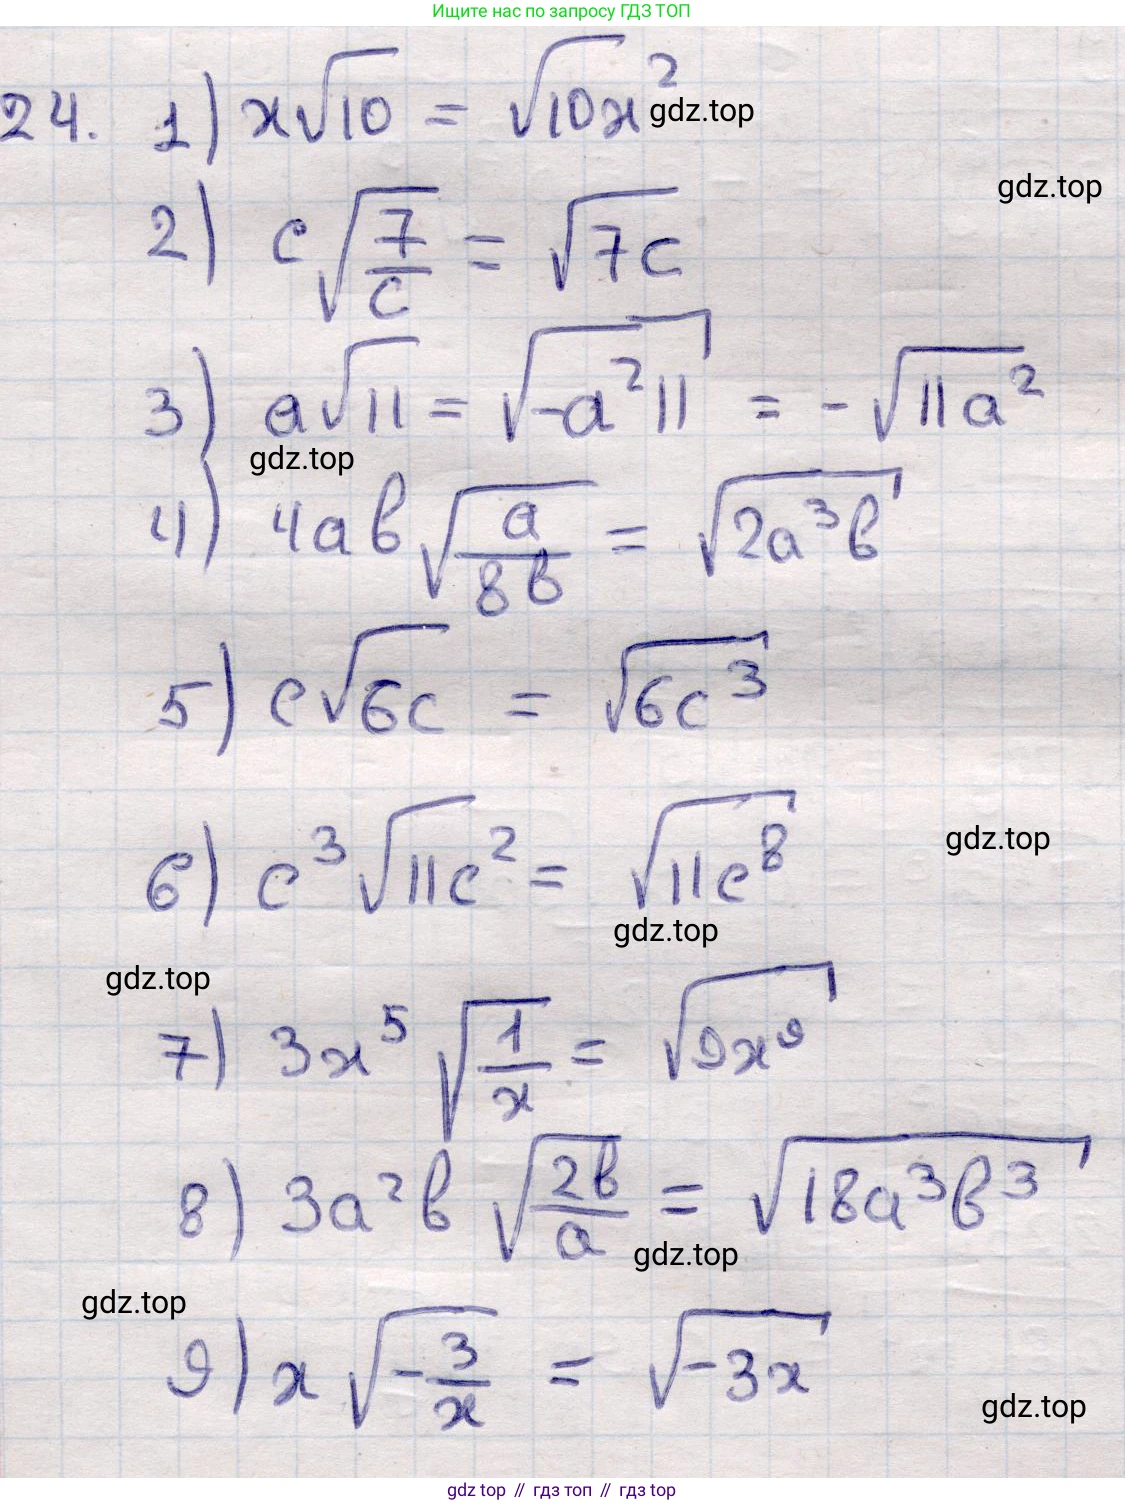 Ищите нас по запросу ГДЗ ТОП
24. 1) x√10 = √10x²
gdz.top
gdz.top
2) c√(7/c) = √7c
3) a√11 = √-a²11 = -√11a²
gdz.top
4) 4ab√(a/8b) = √2a³b
5) c√6c = √6c³
gdz.top
6) c³√11c² = √11c⁸
gdz.top
gdz.top
7) 3x⁵√(1/x) = √9x⁹
8) 3a²b√(2b/a) = √18a³b³
gdz.top
gdz.top
9) x√(-3/x) = √-3x
gdz.top
gdz top // гдз топ // gdz top